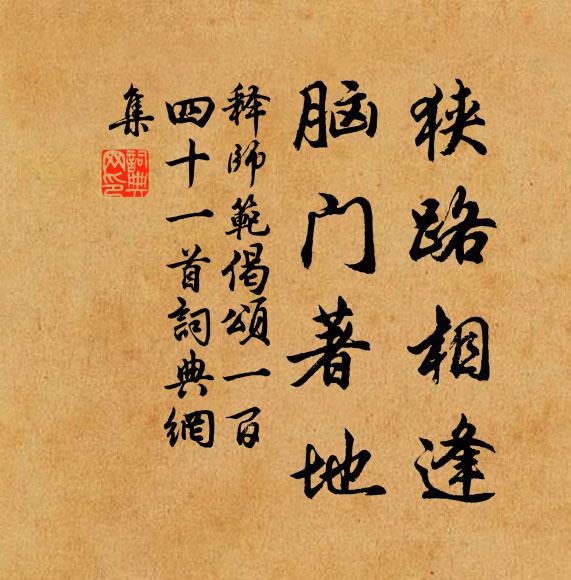 狭路相逢
脑门著地
释师範偈頌一百
四十一首詞典網
集
詞典網印